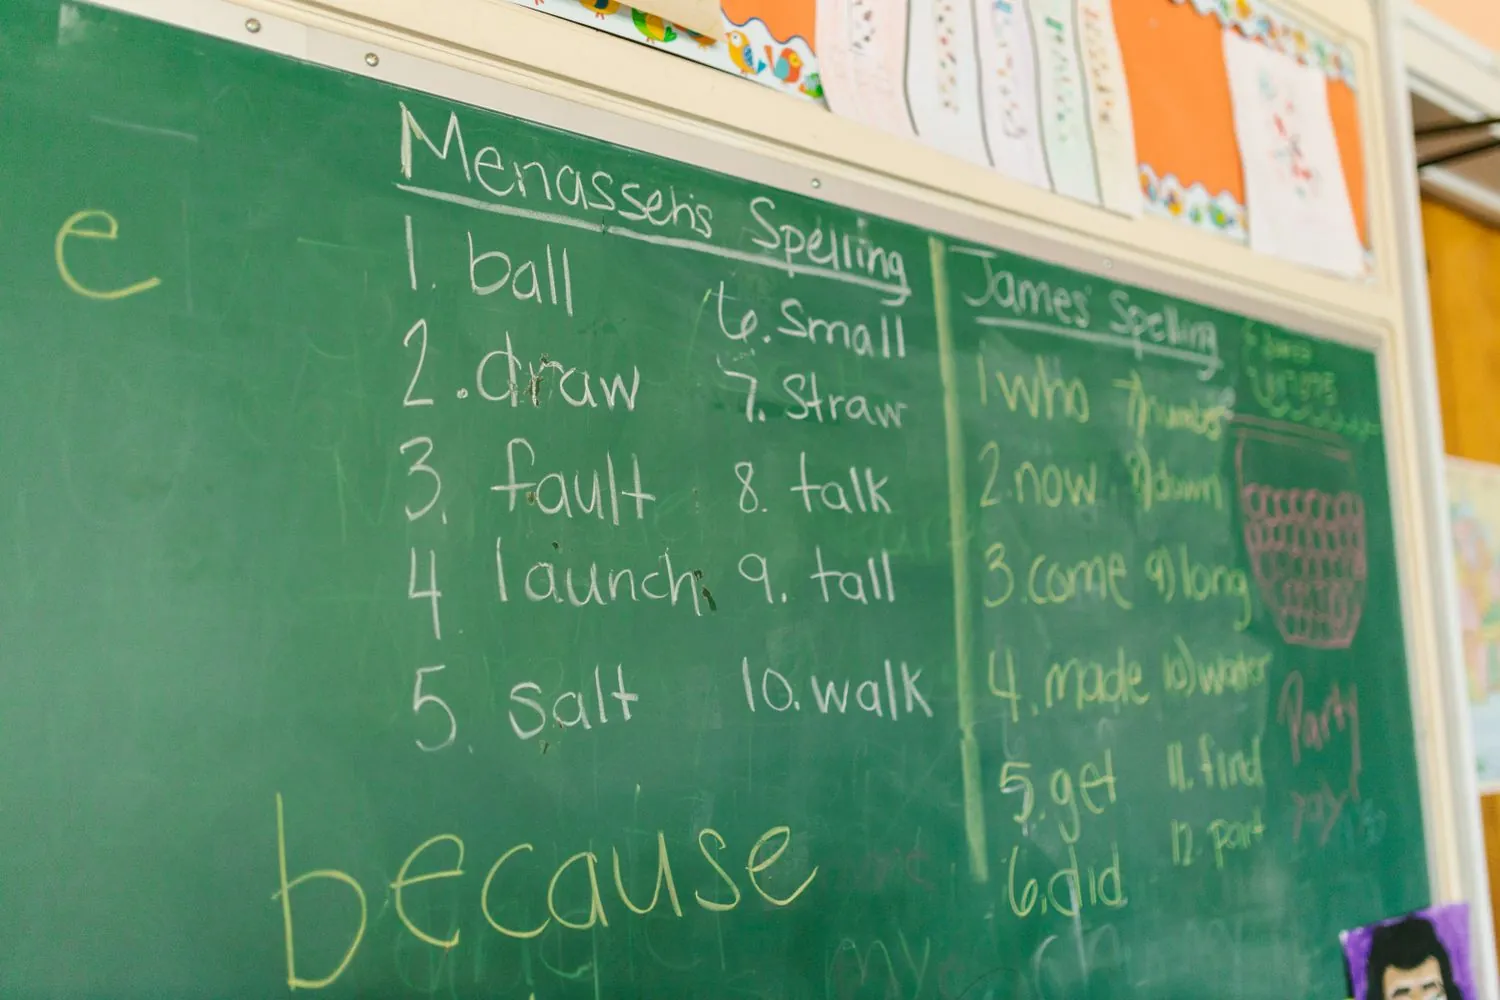 e
Menasseh's Spelling
1. ball
2. draw
3. fault
4. launch
5. salt
6. Small
7. Straw
8. talk
9. tall
10. walk
because
James' Spelling
1 who
2. now
3. come
4. made
5. get
6. did
7) number
8) down
9) long
10) water
11. find
12. part
Party
yay!